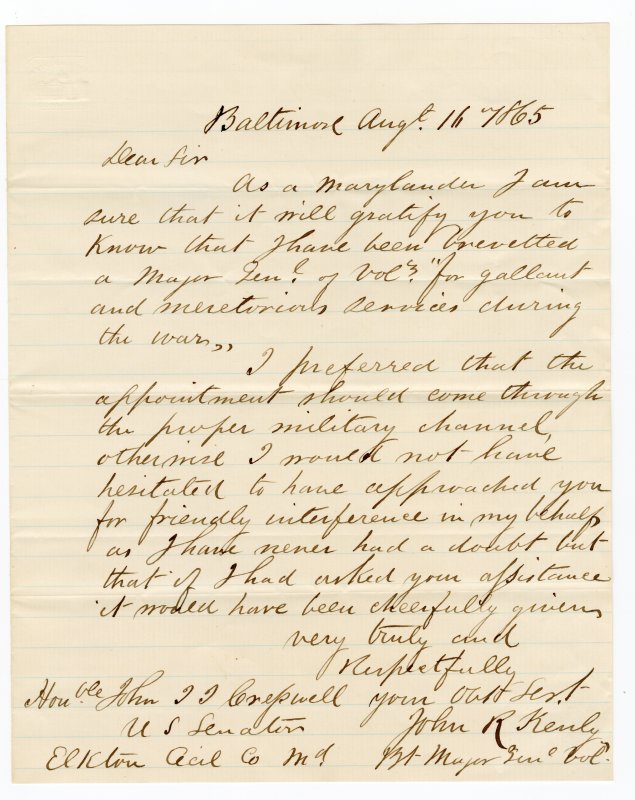 Baltimore Augt. 16th 1865
Dear Sir
As a Marylander I am
sure that it will gratify you to
Know that I have been brevetted
a Major Genl. of Vols. "for gallant
and meretorious services during
the war"
I preferred that the
appointment should come through
the proper military channel,
otherwise I would not have
hesitated to have approached you
for friendly interference in my behalf,
as I have never had a doubt but
that if I had asked your assistance
it would have been cheerfully given,
very truly and
Respectfully
your Obt Servt
John R Kenly
Bt Major Genl Vols.
Honble John J J Creswell
U S Senator
Elkton Cecil Co Md.